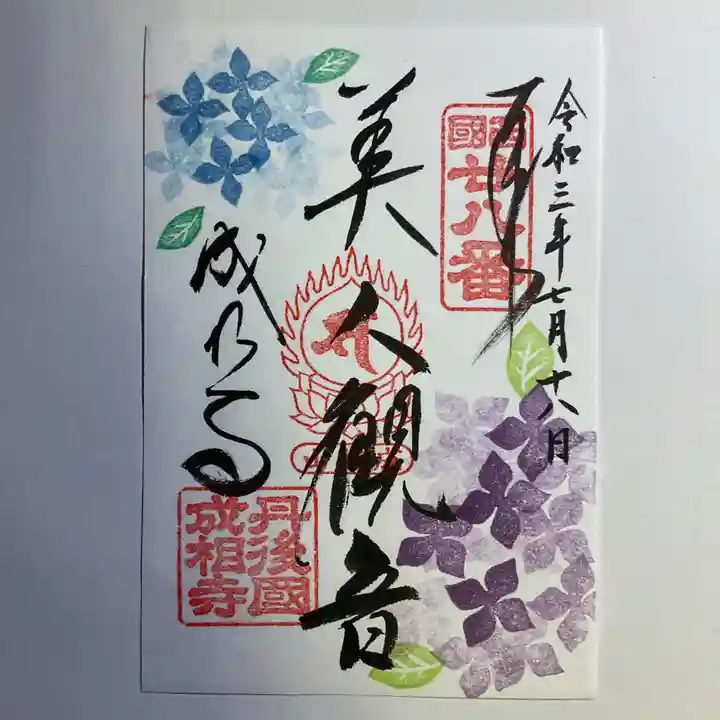 令和三年七月十八日
奉拝
西國
廿八番
美人観音
成相寺
丹後國
成相寺